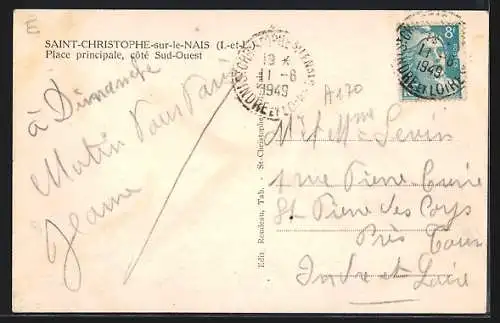 E
SAINT-CHRISTOPHE-sur-le-NAIS (I.-et-L.)
Place principale, côté Sud-Ouest
à Dimanche
Matin
Jeanne
Edit. Rondeau, Tab. - St-Christophe
ST CHRISTOPHE S/LE NAIS
19 *
1 -8
1949
INDRE ET LOIRE
8F
1 -8
1949
INDRE ET LOIRE
A170
Mr et Mme
1 rue Pierre Curie
St Pierre des Corps
Près Tours
Indre et Loire